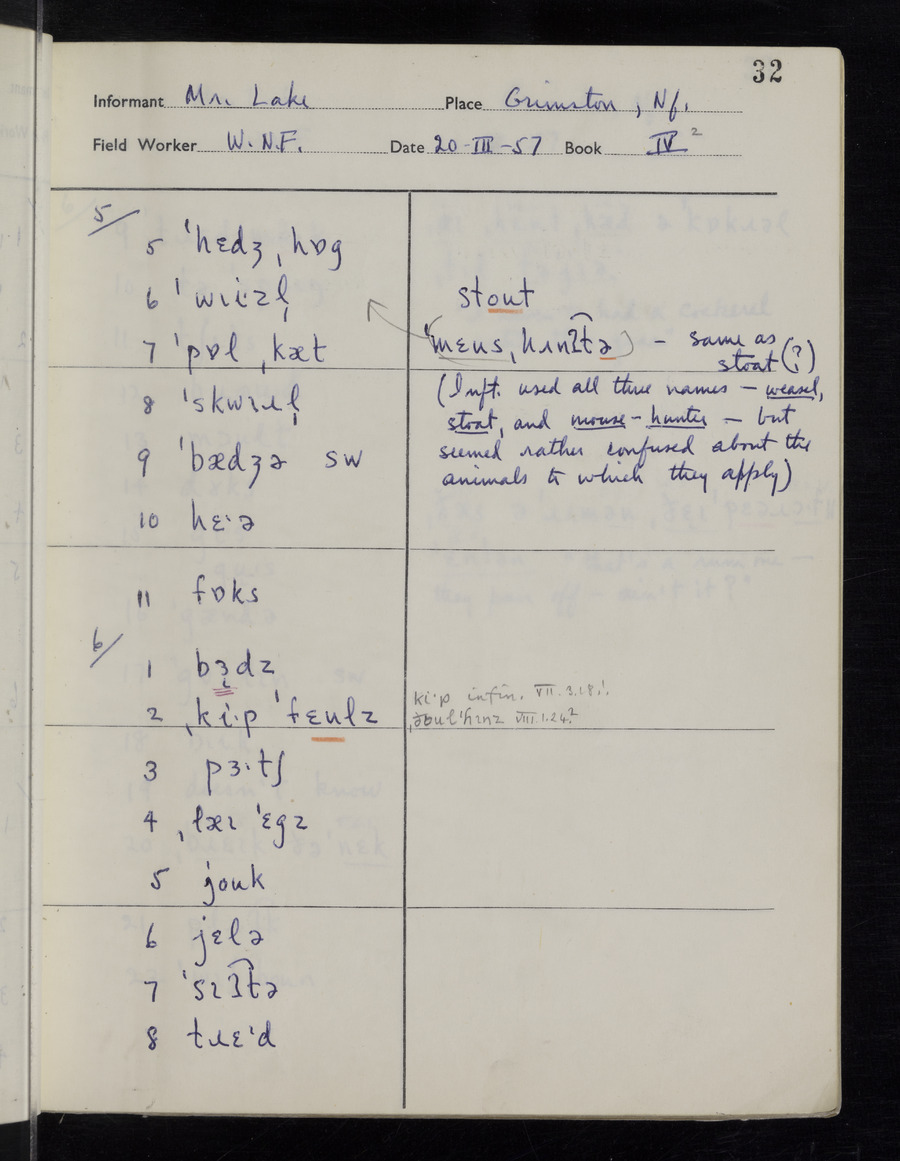 32
Informant Mr. Lake Place Grimston, Nf.
Field Worker W.N.F. Date 20-III-57 Book IV²
5/
5 ˈhɛdʒˌhɒg
6 ˈwɪi·zl̩ stout
7 ˈpɒlˌkæt (ˈmɛusˌhʌnʔ͡tə) – same as
stoat (?)
8 ˈskwɪɹl̩ (Inft. used all three names – weasel,
stoat, and mouse-hunter – but
9 ˈbædʒə SW seemed rather confused about the
animals to which they apply)
10 hɛ·ə
11 fɒks
6/
1 bɜdz
ki·p infin. VII.3.18.¹.
2 ˌki·p ˈfɛulz VIII.1.24.²
3 pɜ·tʃ
4 ˌlæɪ ˈɛgz
5 jouk
6 jɛlə
7 ˈsɪʔ͡tə
8 tɹɛ·d